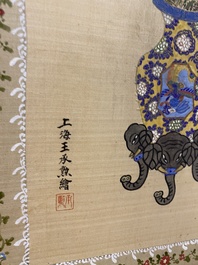 上海王承勲繪